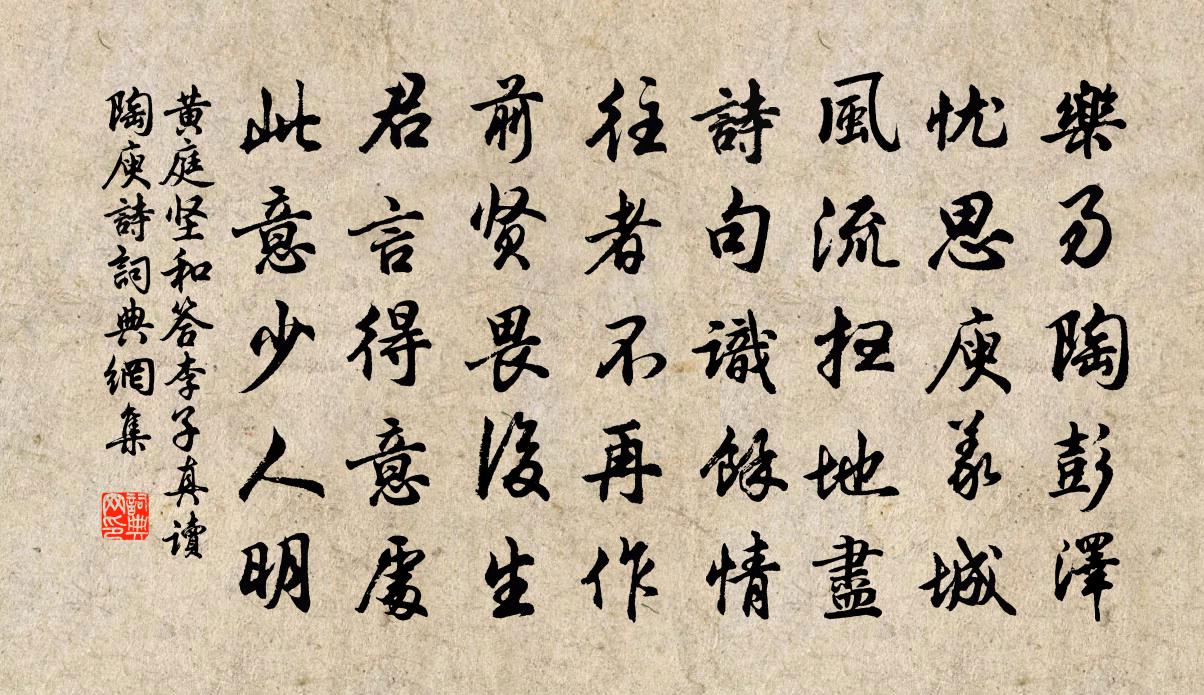 樂易陶彭澤
忧思庾義城
風流扫地盡
詩句識餘情
往者不再作
前贤畏後生
君言得意處
此意少人明
黄庭坚和答李子真讀
陶庾詩詞典網集
詞典网印